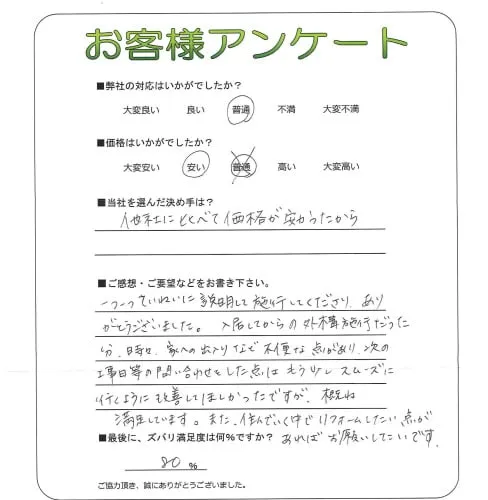 お客様アンケート
■弊社の対応はいかがでしたか？
大変良い 良い 普通 不満 大変不満
■価格はいかがでしたか？
大変安い 安い 普通 高い 大変高い
■当社を選んだ決め手は？
他社に比べて価格が安かったから
■ご感想・ご要望などをお書き下さい。
一つ一つていねいに説明して施行してくださり、あり
がとうございました。入居してからの外構施行だった
分、日時や、家への出入りなど不便な点があり、次の
工事日等の問い合わせをした点はもう少しスムーズに
行くように改善してほしかったですが、概ね
満足しています。また、住んでいく中でリフォームしたい点が
あればお願いしたいです。
■最後に、ズバリ満足度は何％ですか？
80 %
ご協力頂き、誠にありがとうございました。